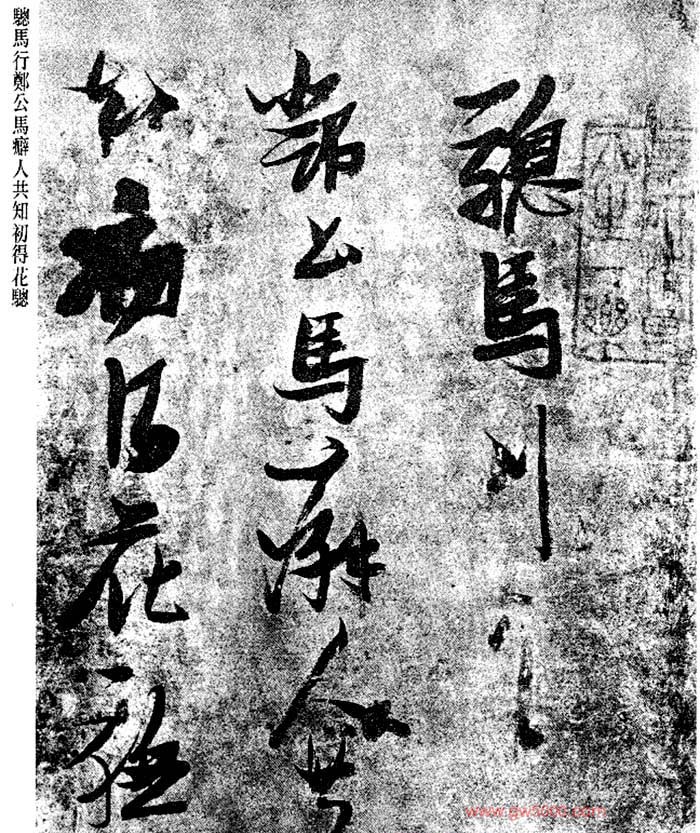 驄馬行
鄭公馬癖人共
知初得花驄
驄馬行鄭公馬癖人共知初得花驄